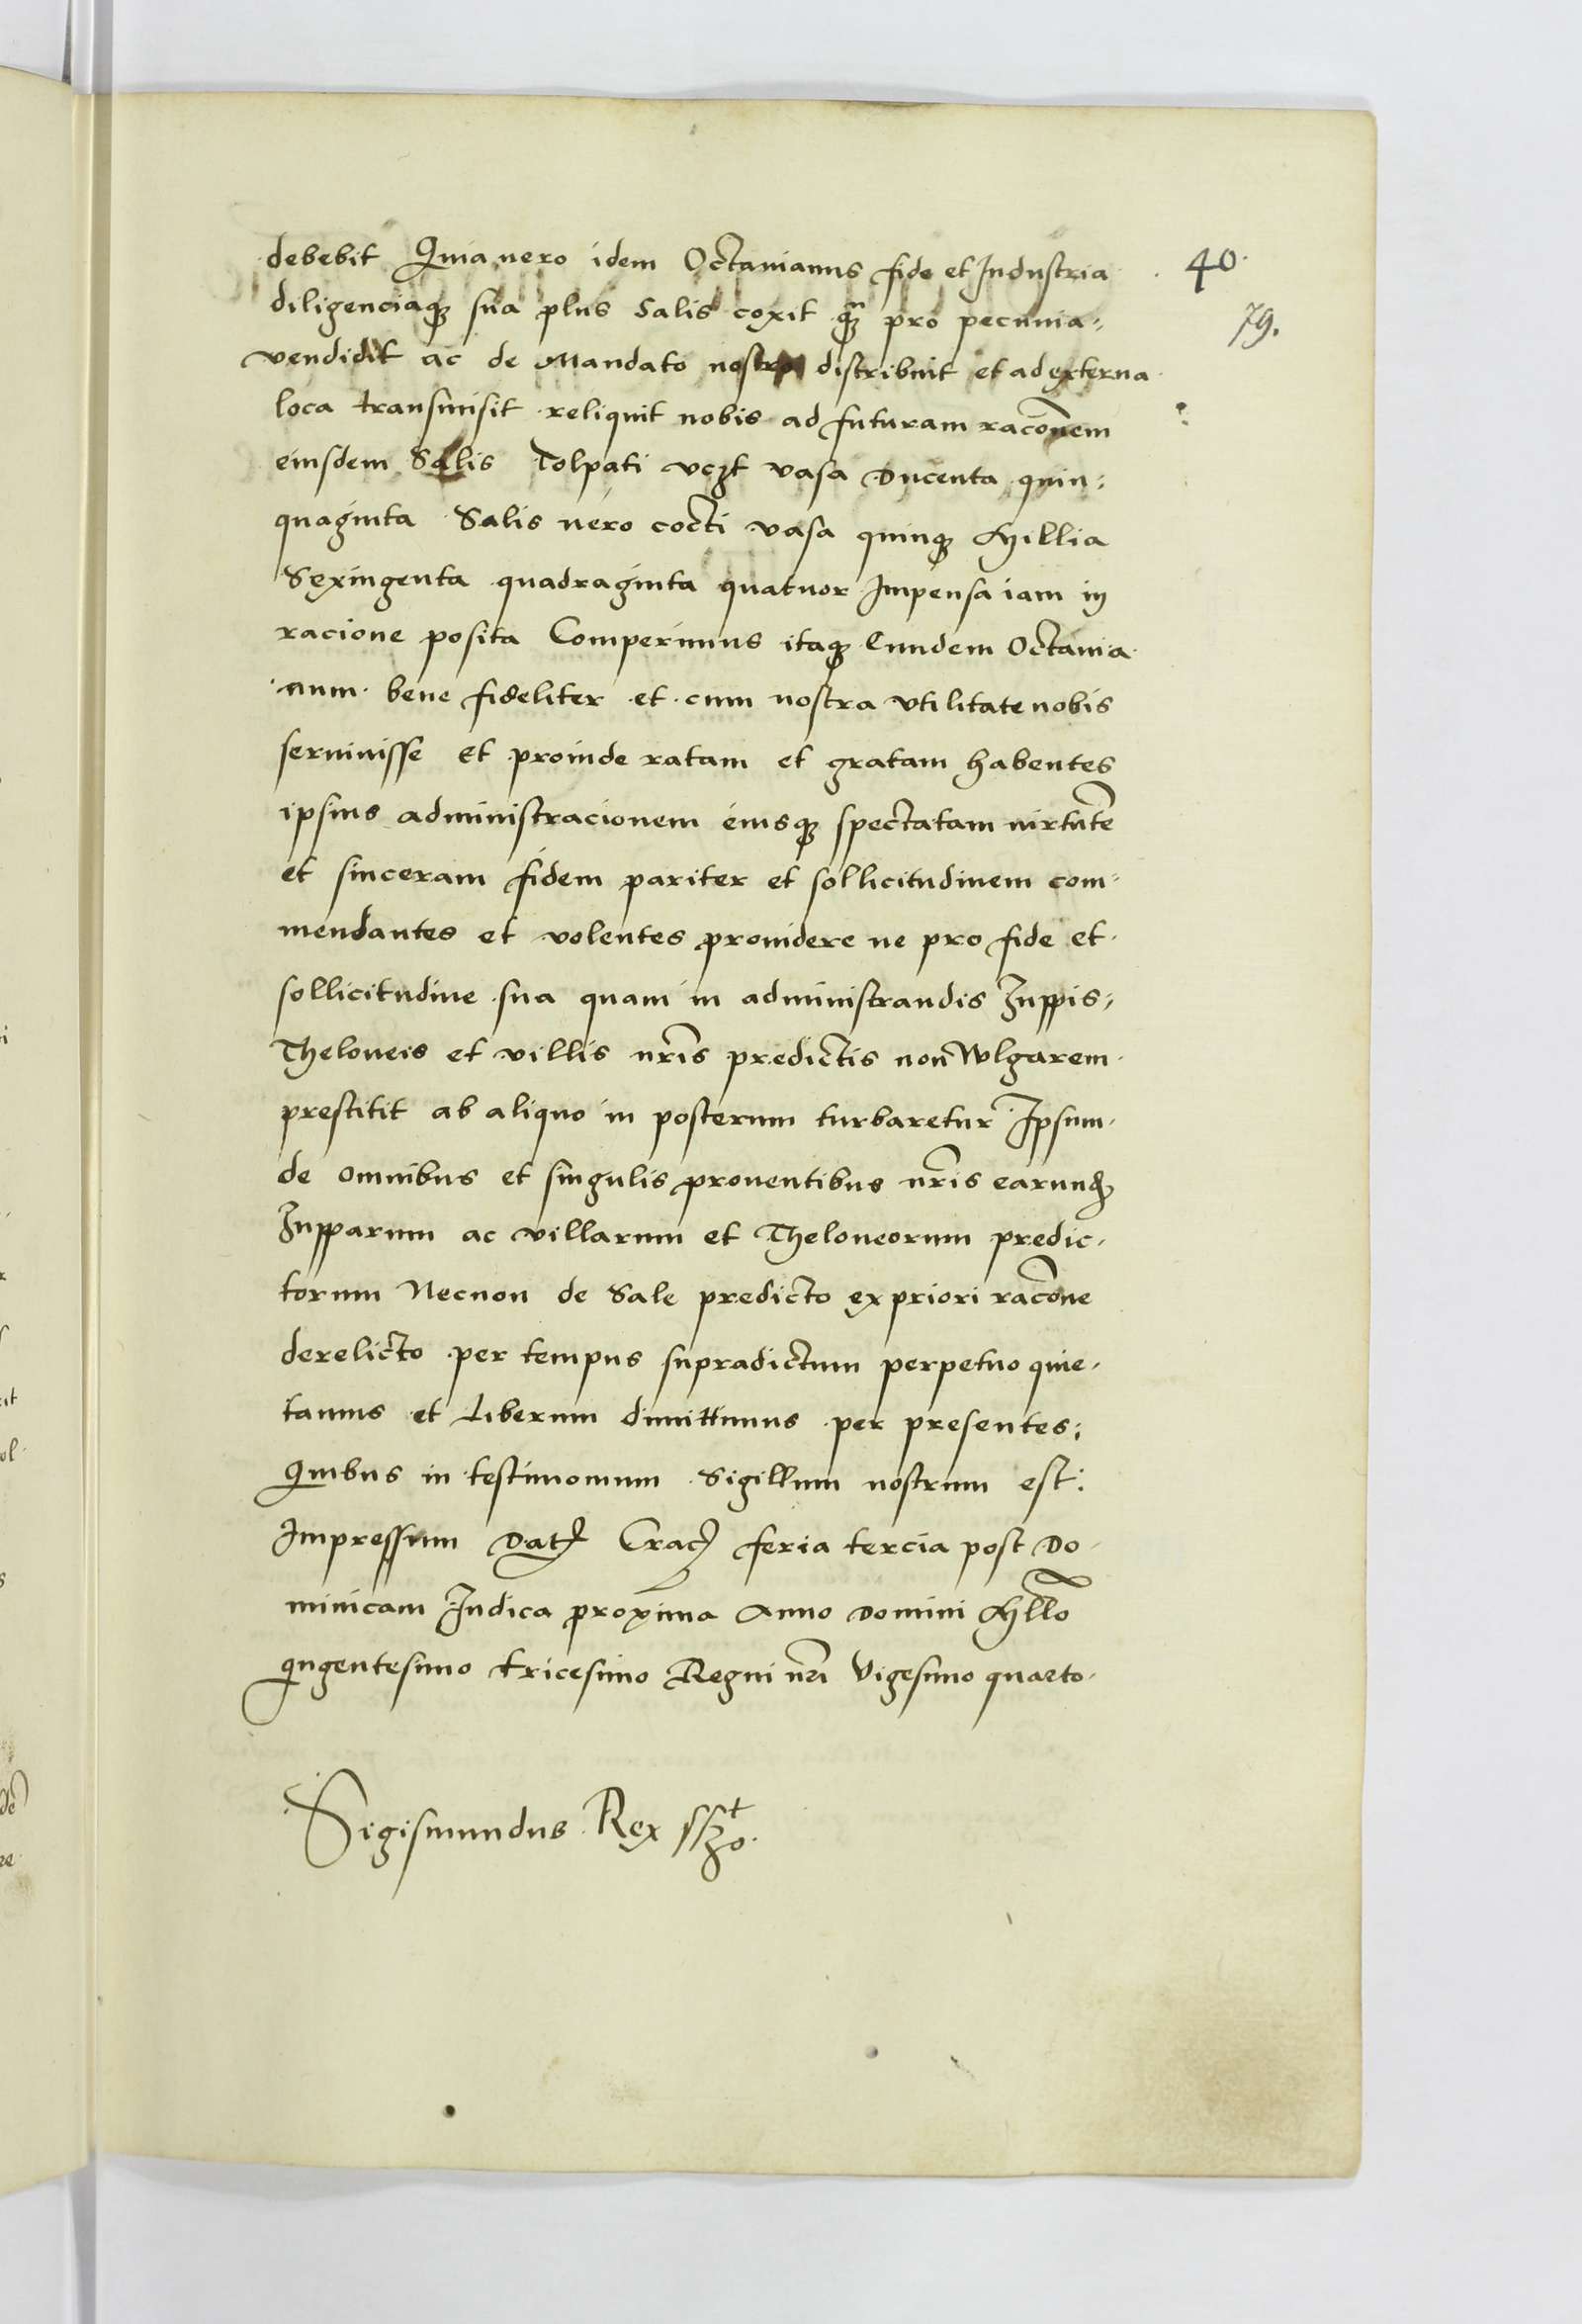 debebit Quia uero idem Octauianus fide et Industria
40
diligenciaq; sua plus Salis coxit q̃; pro pecunia
79.
vendidit ac de Mandato nostro distribuit et ad externa
loca transmisit reliquit nobis ad futuram racõnem
eiusdem Salis Tolpati vczt vasa Ducenta quin:
quaginta Salis uero cocti vasa quinq; Millia
Sexingenta quadraginta quatuor Impensa iam in
racione posita Comperimus itaq; Eundem Octauia
num bene fideliter et cum nostra vtilitate nobis
seruiuisse et proinde ratam et gratam habentes
ipsius administracionem eiusq; spectatam uirtutẽ
et sinceram fidem pariter et sollicitudinem com
mendantes et volentes prouidere ne pro fide et
sollicitudine sua quam in administrandis Zuppis
Theloneis et villis nr̃is predictis non Wlgarem
prestitit ab aliquo in posterum turbaretur Ipsum
de omnibus et singulis prouentibus nr̃is earund;
Zupparum ac villarum et Theloneorum predic
torum Necnon de Sale predicto ex priori racõne
derelicto per tempus supradictum perpetuo quie
tamus et Liberum dimittimus per presentes:
Quibus in testimonium Sigillum nostrum est:
Impressum Dat Crac feria tercia post Do
minicam Iudica proxima Anno Domini Mllo
qngentesimo tricesimo Regni nr̃i Vigesimo quarto
Sigismundus Rex sszt